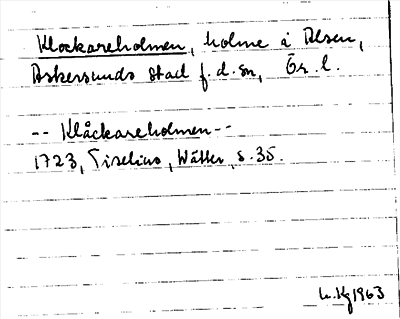 Klockareholmen, holme i Alsen,
Askersunds stad f.d. sn, Ör. l.
-- Klåckareholmen --
1723, Tiselius, Wätter, s. 35.
1963